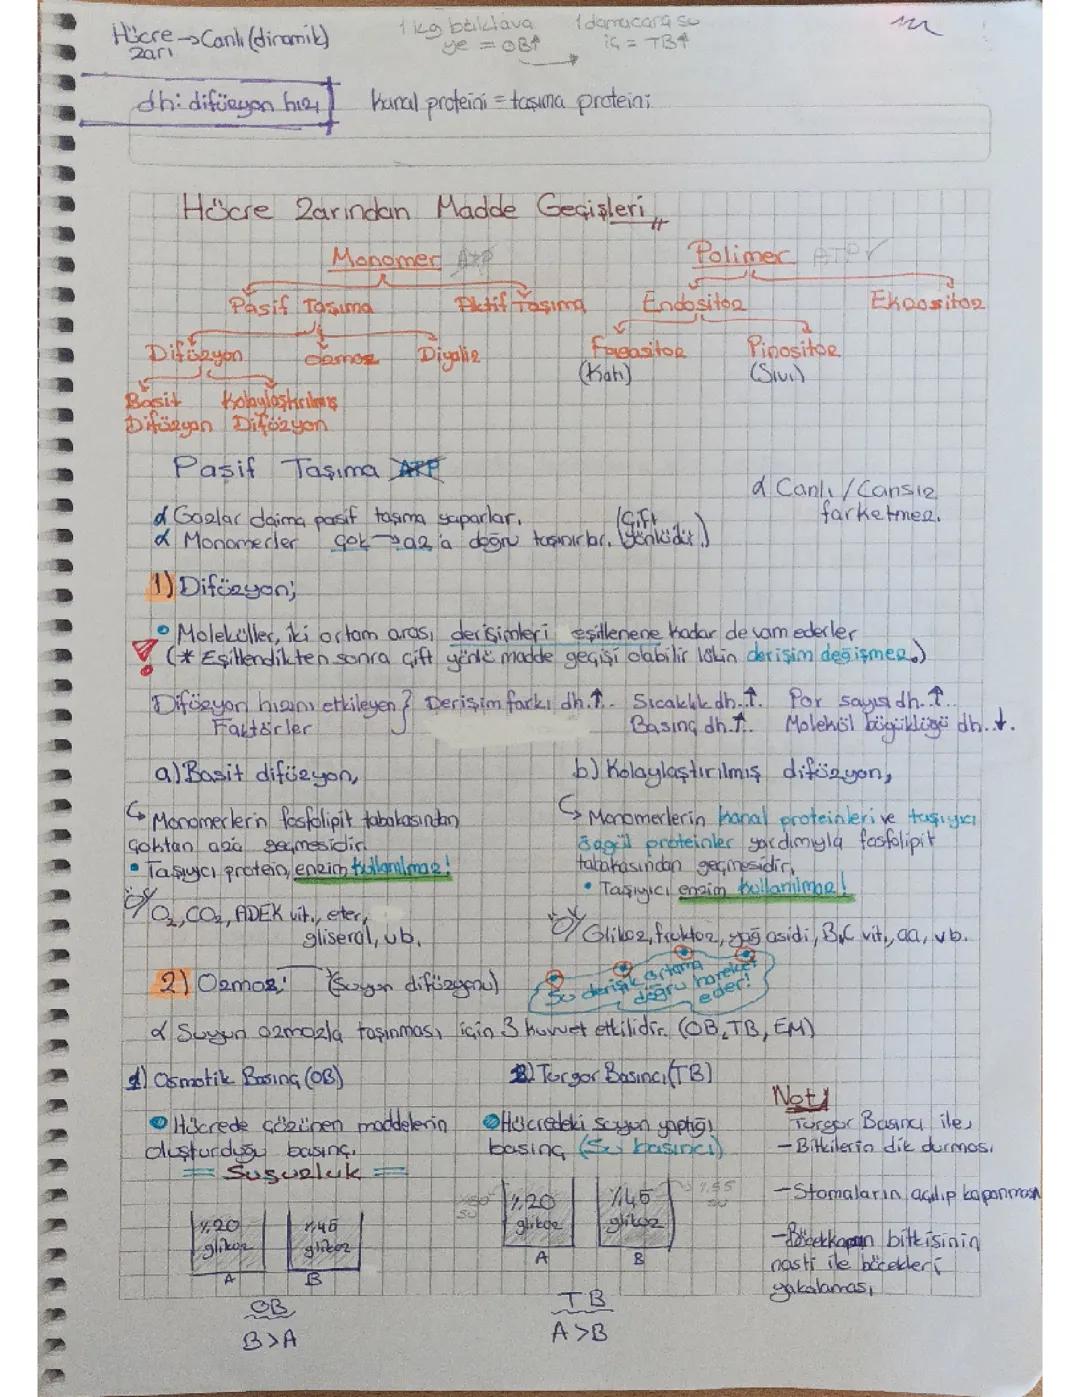 Hücre zarı → Canlı (dinamik)
1 kg baklava ye = OB↑
1 damacana su iç = TB↑
dh: difüzyon hızı
Kanal proteini = taşıma proteini
Hücre Zarından Madde Geçişleri
Monomer ATP
Polimer ATP ✓
Pasif Taşıma
Aktif Taşıma
Endositoz
Ekzositoz
Difüzyon
Osmoz
Diyaliz
Fagositoz
(Katı)
Pinositoz
(Sıvı)
Basit Difüzyon
Kolaylaştırılmış Difüzyon
Pasif Taşıma ATP
α Canlı / Cansız farketmez.
α Gazlar daima pasif taşıma yaparlar.
α Monomerler çok → az'a doğru taşınırlar. (Çift yönlüdür.)
1) Difüzyon;
• Moleküller, iki ortam arası derişimleri eşitlenene kadar devam ederler
(* Eşitlendikten sonra çift yönlü madde geçişi olabilir lakin derişim değişmez.)
Difüzyon hızını etkileyen Faktörler } Derişim farkı dh.↑. Sıcaklık dh.↑. Por sayısı dh.↑.
Basınç dh.↑. Molekül büyüklüğü dh..↓.
a) Basit difüzyon,
↳ Monomerlerin fosfolipit tabakasından
çoktan aza geçmesidir.
• Taşıyıcı protein, enzim kullanılmaz!
O₂, CO₂, ADEK vit., eter,
gliserol, vb.
b) Kolaylaştırılmış difüzyon,
↳ Monomerlerin kanal proteinleri ve taşıyıcı
proteinler yardımıyla fosfolipit
tabakasından geçmesidir,
• Taşıyıcı enzim kullanılmaz!
Glikoz, fruktoz, yağ asidi, B,C vit., aa, vb.
2) Ozmoz: (Suyun difüzyonu)
Su derişik ortama doğru hareket eder!
α Suyun ozmozla taşınması için 3 kuvvet etkilidir. (OB, TB, EM)
1) Osmotik Basınç (OB)
• Hücrede çözünen maddelerin
oluşturduğu basınç.
= Susuzluk =
%20 glikoz
A
%45 glikoz
B
OB
B>A
2) Turgor Basıncı (TB)
• Hücredeki suyun yaptığı
basınç (Su basıncı)
su
%20 glikoz
A
%45 glikoz
B
%55 su
TB
A>B
Not!
Turgor Basıncı ile,
- Bitkilerin dik durması
- Stomaların açılıp kapanması
- Böcekkapan bitkisinin
nasti ile böcekleri
yakalaması,